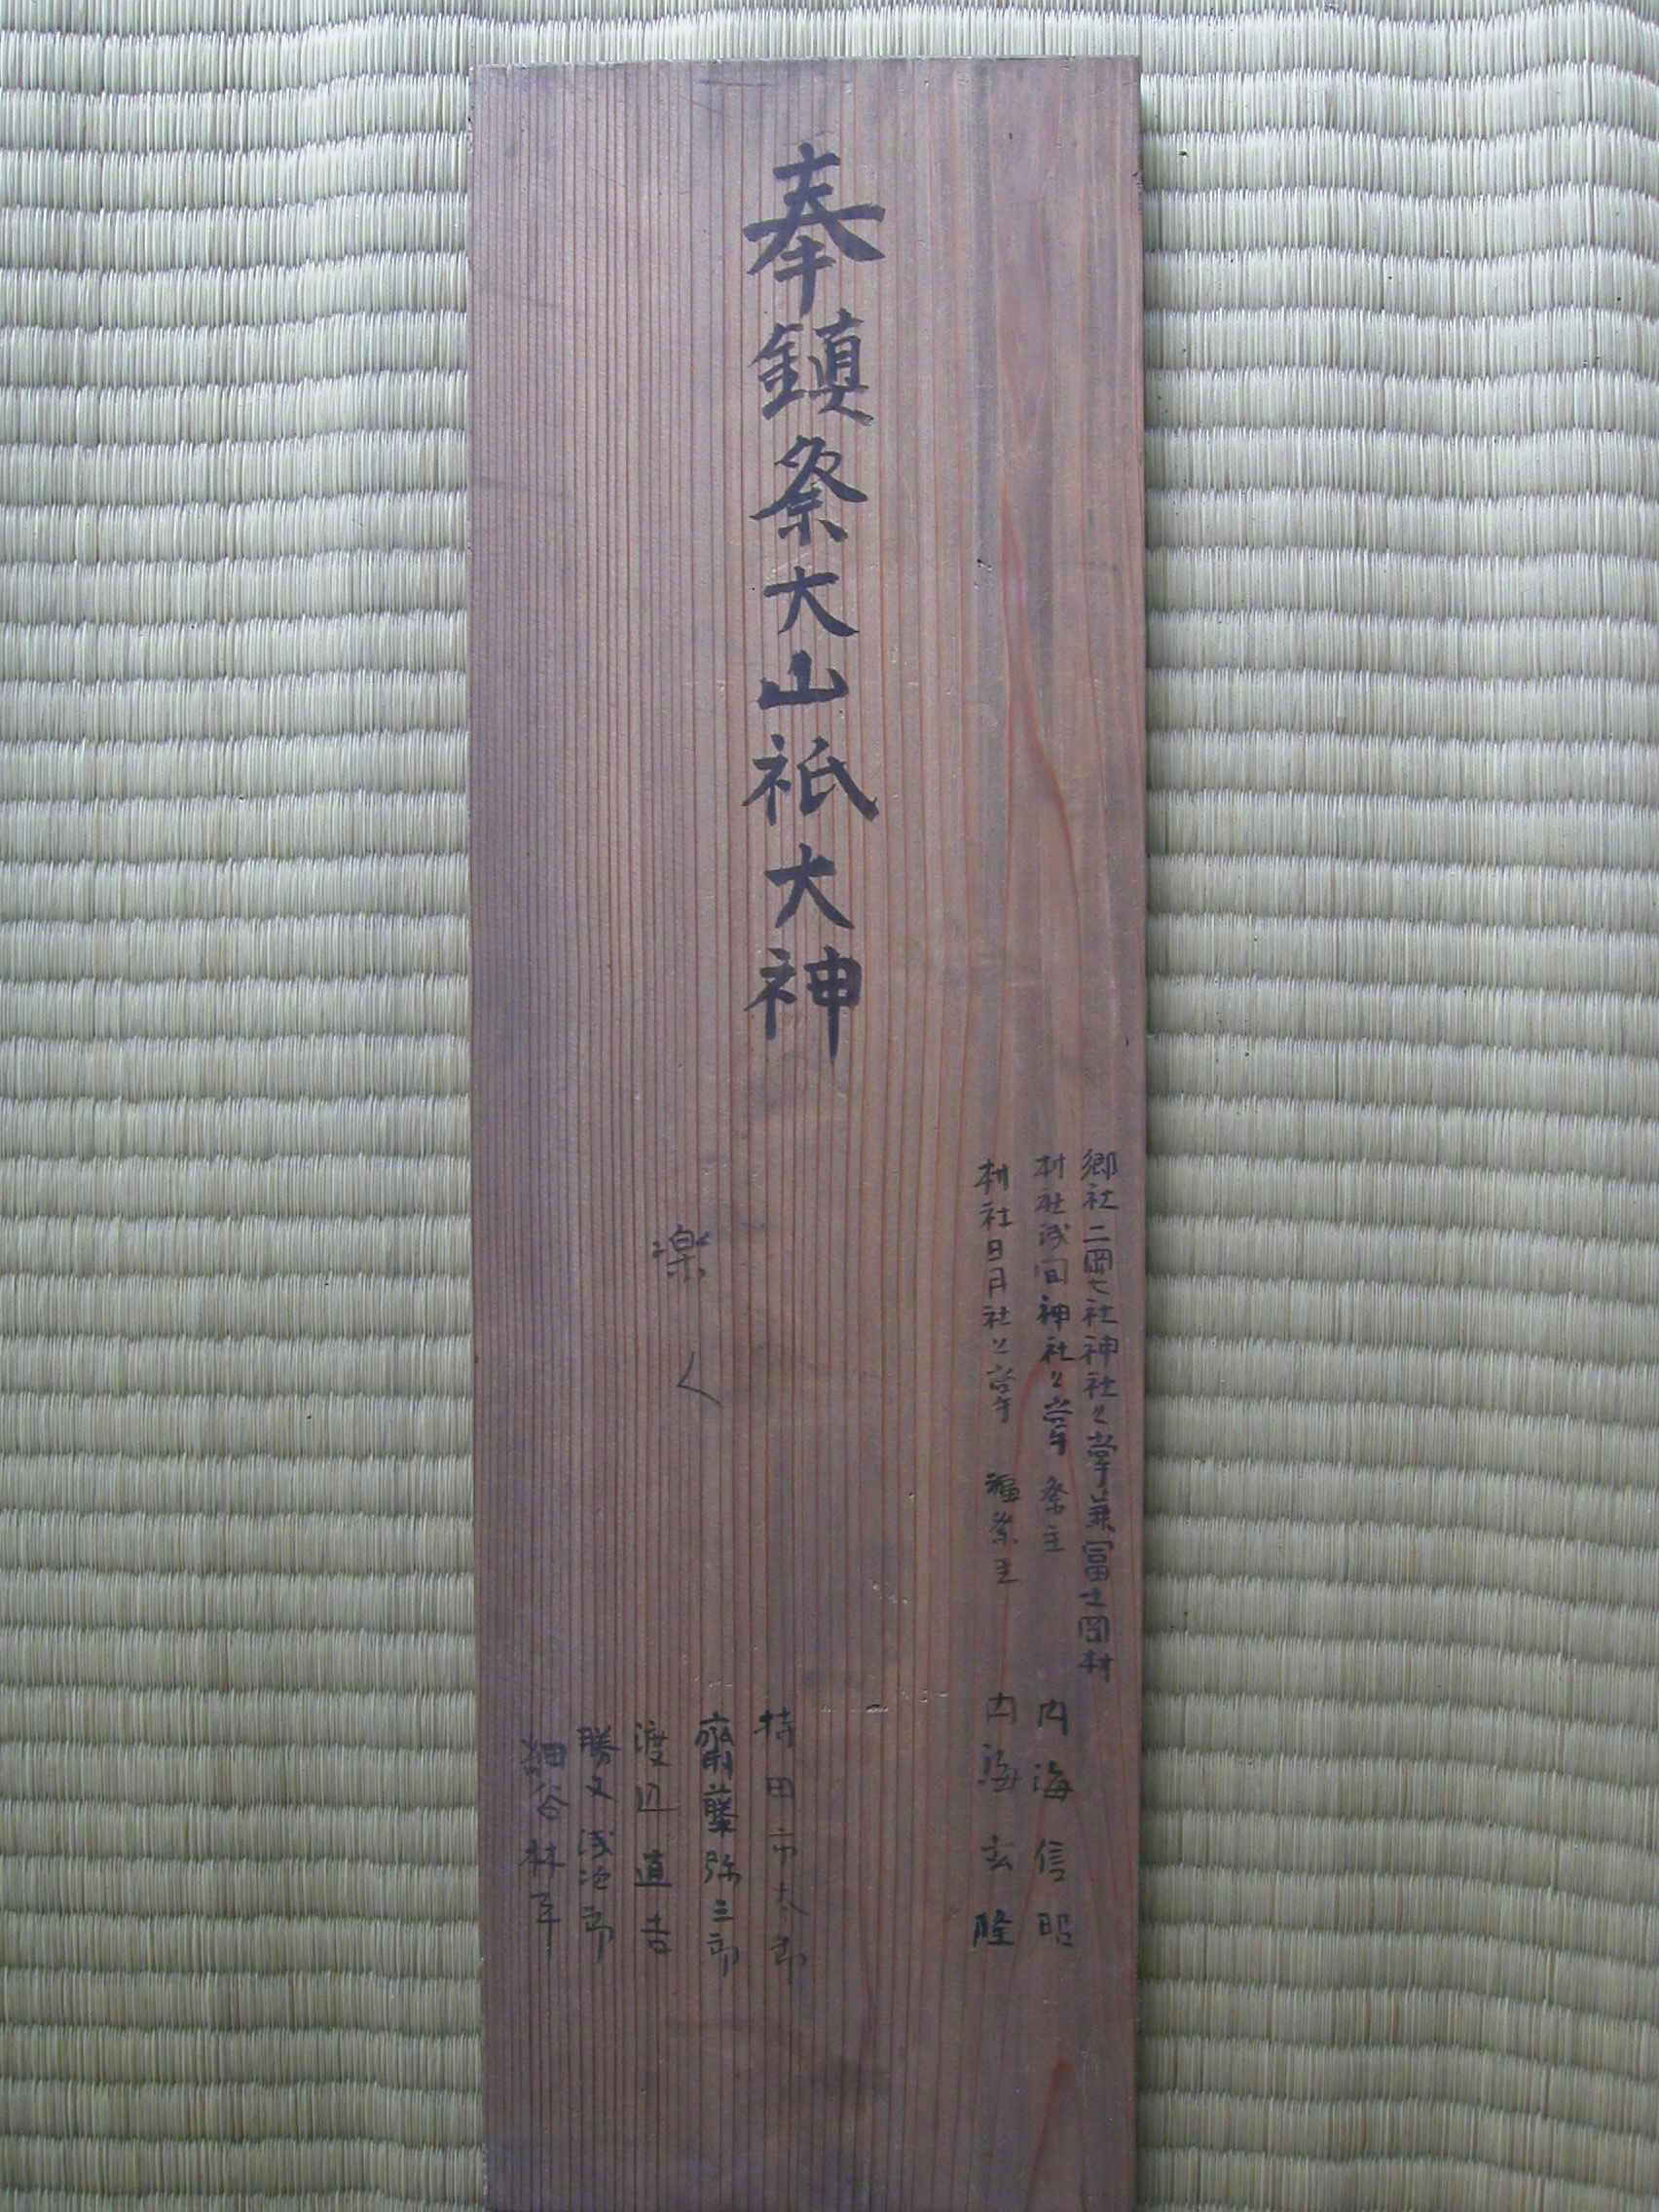 郷社二岡七社神社々掌兼冨士岡村
村社浅间神社々掌 祭主 内海信昭
村社日月社々掌 福祭主 内海玄隆
奉鎮祭大山祇大神
持田市太郎
齋藤弥三郎
楽 く
渡辺道吉
勝又浅治郎
細谷林平